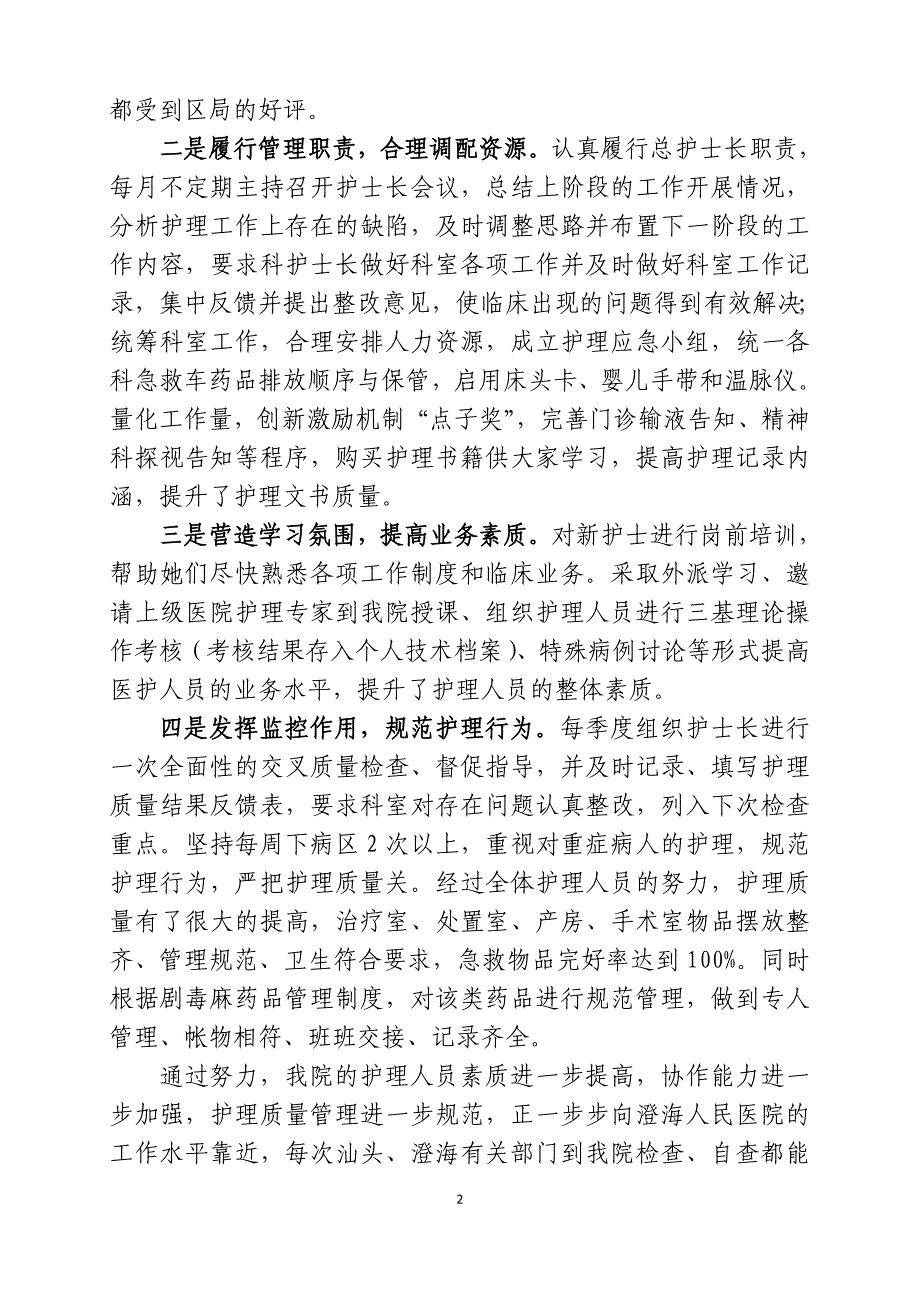 都受到区局的好评。
二是履行管理职责，合理调配资源。认真履行总护士长职责，
每月不定期主持召开护士长会议，总结上阶段的工作开展情况，
分析护理工作上存在的缺陷，及时调整思路并布置下一阶段的工
作内容，要求科护士长做好科室各项工作并及时做好科室工作记
录，集中反馈并提出整改意见，使临床出现的问题得到有效解决；
统筹科室工作，合理安排人力资源，成立护理应急小组，统一各
科急救车药品排放顺序与保管，启用床头卡、婴儿手带和温脉仪。
量化工作量，创新激励机制“点子奖”，完善门诊输液告知、精神
科探视告知等程序，购买护理书籍供大家学习，提高护理记录内
涵，提升了护理文书质量。
三是营造学习氛围，提高业务素质。对新护士进行岗前培训，
帮助她们尽快熟悉各项工作制度和临床业务。采取外派学习、邀
请上级医院护理专家到我院授课、组织护理人员进行三基理论操
作考核（考核结果存入个人技术档案）、特殊病例讨论等形式提高
医护人员的业务水平，提升了护理人员的整体素质。
四是发挥监控作用，规范护理行为。每季度组织护士长进行
一次全面性的交叉质量检查、督促指导，并及时记录、填写护理
质量结果反馈表，要求科室对存在问题认真整改，列入下次检查
重点。坚持每周下病区2次以上，重视对重症病人的护理，规范
护理行为，严把护理质量关。经过全体护理人员的努力，护理质
量有了很大的提高，治疗室、处置室、产房、手术室物品摆放整
齐、管理规范、卫生符合要求，急救物品完好率达到100%。同时
根据剧毒麻药品管理制度，对该类药品进行规范管理，做到专人
管理、帐物相符、班班交接、记录齐全。
通过努力，我院的护理人员素质进一步提高，协作能力进一
步加强，护理质量管理进一步规范，正一步步向澄海人民医院的
工作水平靠近，每次汕头、澄海有关部门到我院检查、自查都能
2